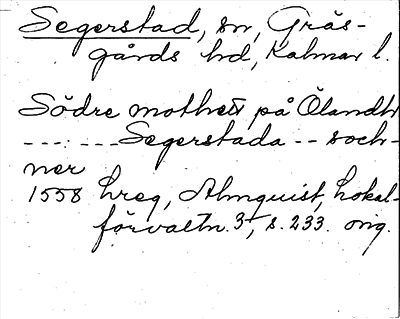 Segerstad, sn, Gräs-
gårds hd, Kalmar l.
Södre mothett på Ölandh
---:---Segerstada -- soch-
ner
1558 hreg, Almquist, Lokal-
förvaltn. 3, s. 233. orig.